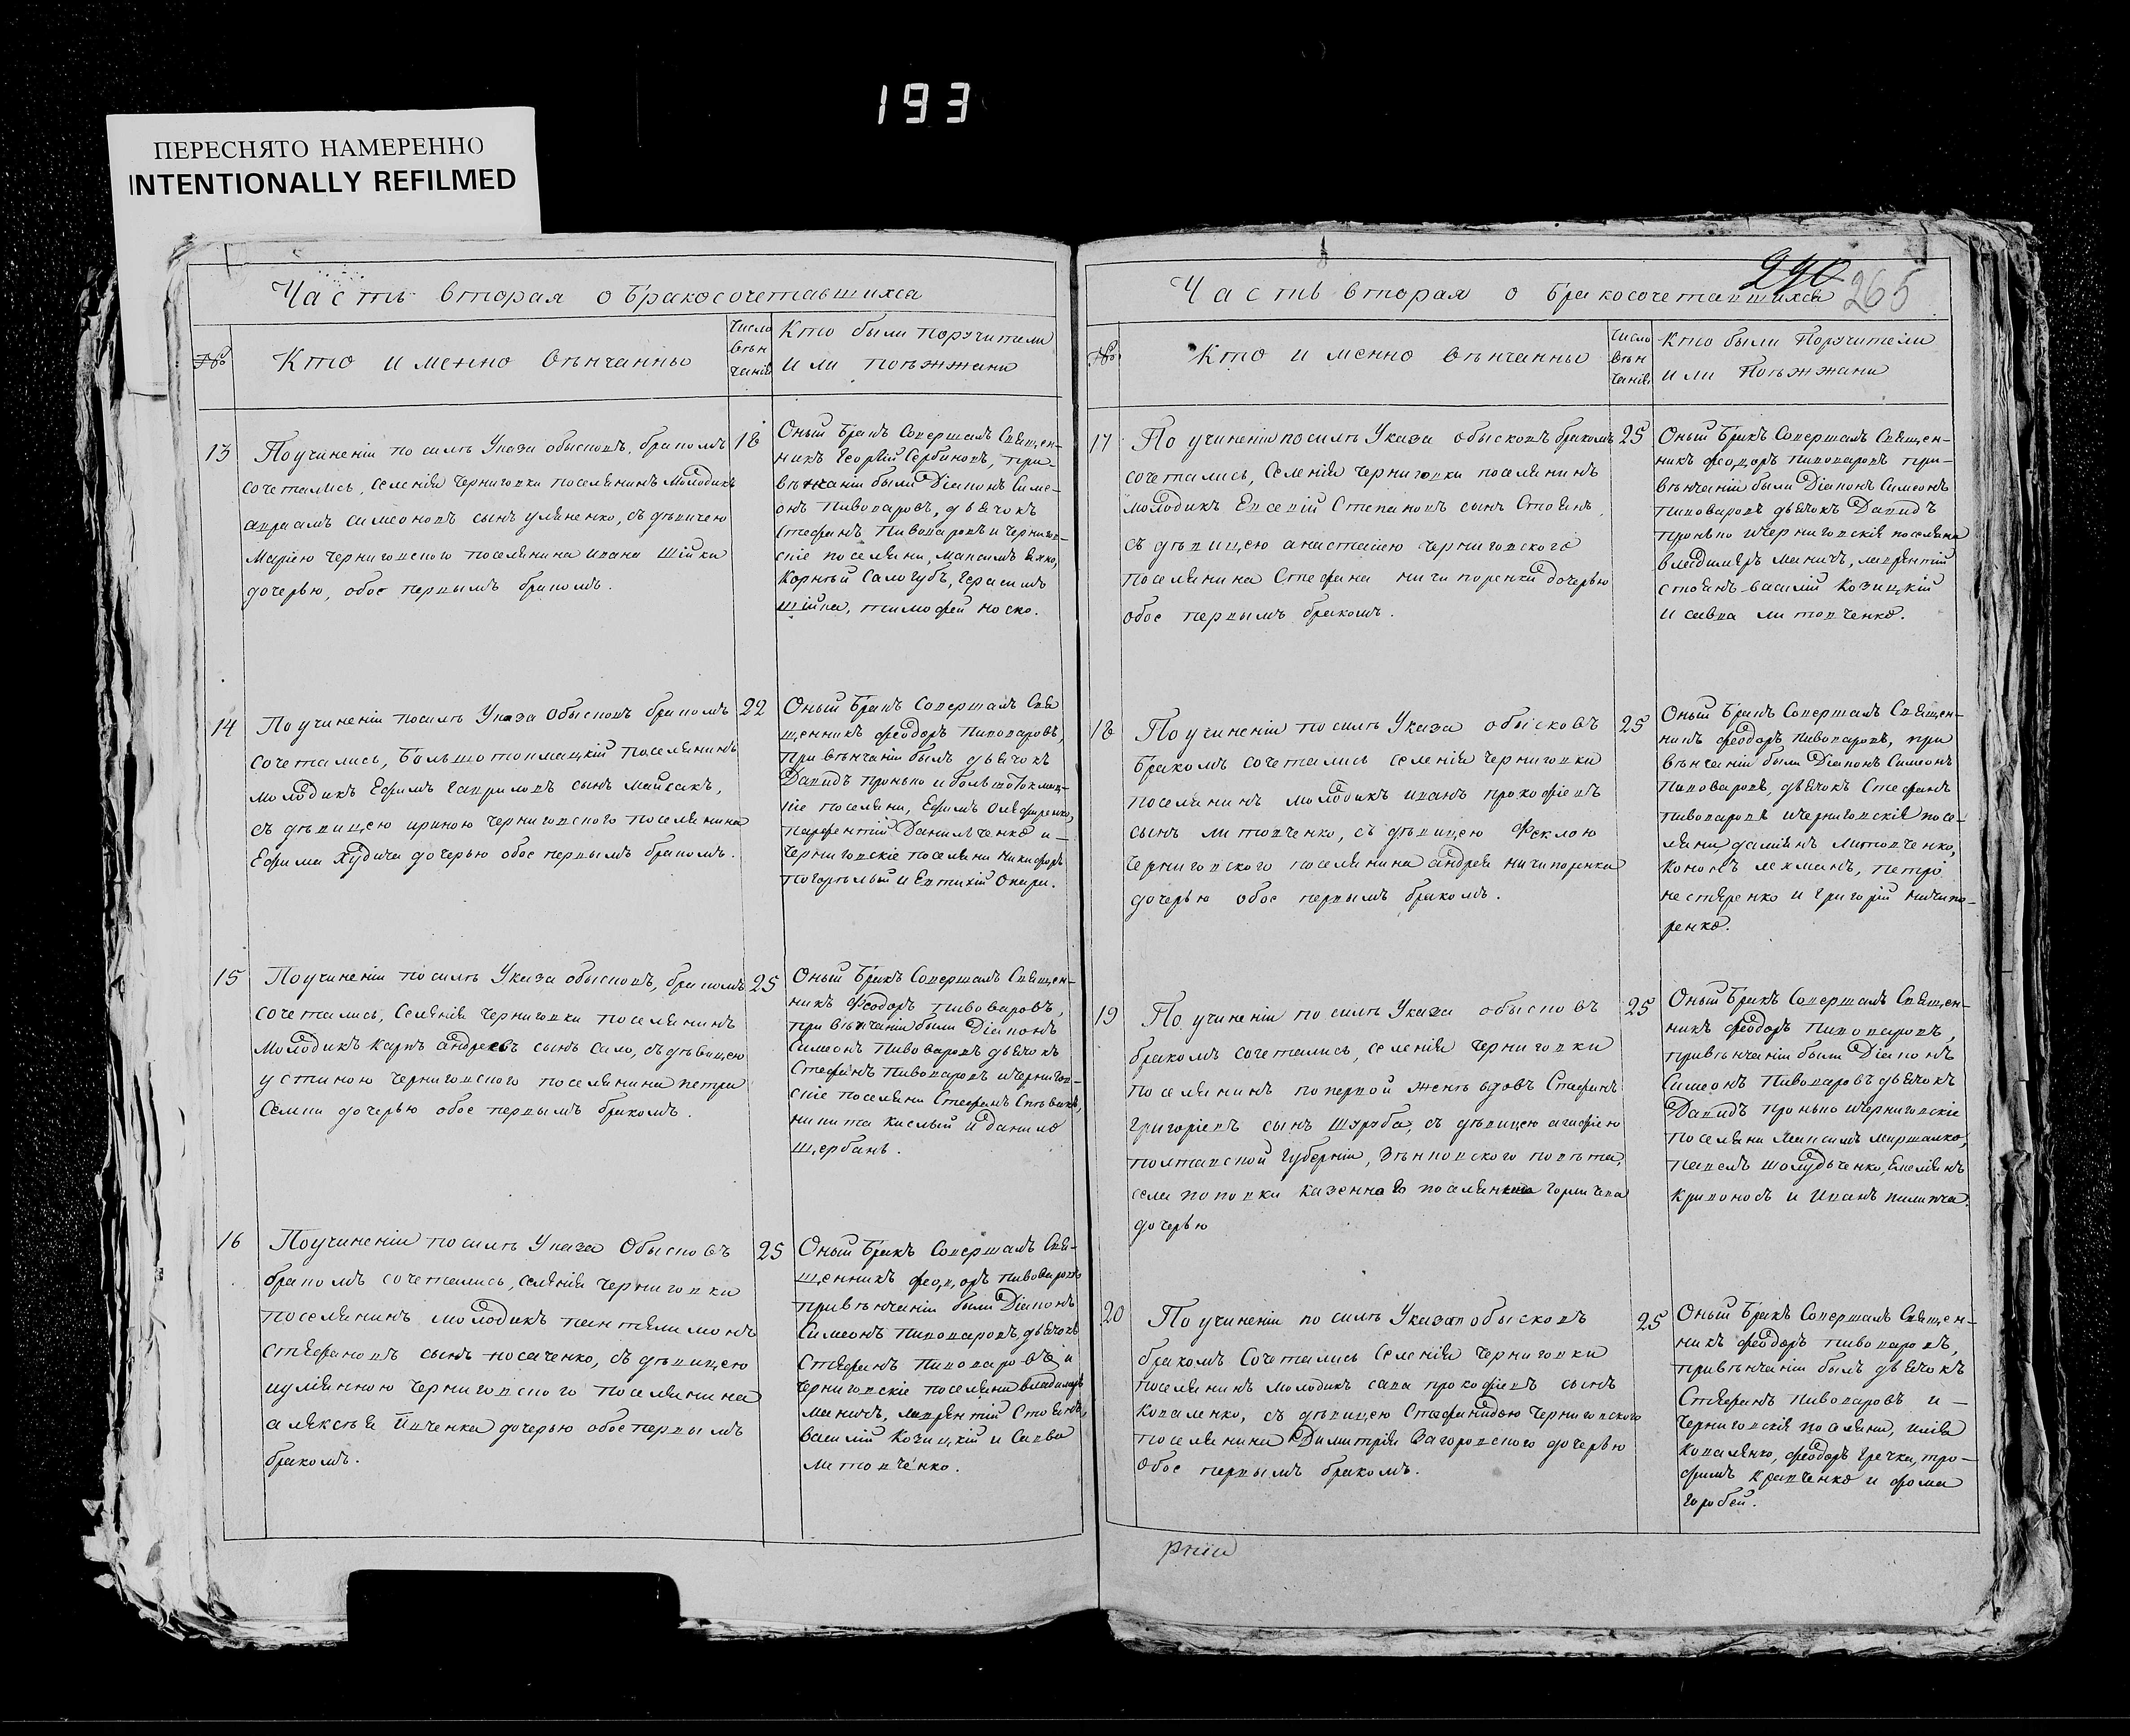 193
ПЕРЕСНЯТО НАМЕРЕННО
INTENTIONALLY REFILMED
Часть вторая о бракосочетавшихся
№
Кто именно вѣнчанны
Число
вѣн
чанія
Кто были поручители
или поѣзжани
13
По учиненіи по силѣ Указа обысковъ, бракомъ
сочетались, селенія Черниговки поселянинъ молодикъ
авраамъ симеоновъ сынъ уляненко, съ дѣвицею
Маріею Черниговского поселянина ивана Шійки
дочерью, обое первымъ бракомъ.
18
Оный бракъ Совершалъ Священ-
никъ Георгій Сербиновъ, при
вѣнчаніи были Діаконъ Симе-
онъ Пивоваровъ, дьячокъ
Стефанъ Пивоваровъ и чернигов-
скіе поселяни, Максимъ
Корнѣй Салогубъ, Герасимъ
Шійка, тимофей носко.
14
По учиненіи по силѣ Указа Обысковъ бракомъ
сочетались, Большотокмацкій поселянинъ
молодикъ Ефимъ Гавриловъ сынъ майсакъ,
съ дѣвицею ириною черниговского поселянина
Ефима Худича дочерью обое первымъ бракомъ.
22
Оный бракъ Совершалъ Свя
щенникъ феодоръ Пивоваровъ,
при вѣнчаніи былъ дьячокъ
Давидъ Пронько и большотокмац-
кіе поселяни, Ефимъ Олефиренко,
парфентій Данильченко и —
Черниговскіе поселяни никифоръ
погорѣлый и Евтихій
15
По учиненіи по силѣ Указа обысковъ, бракомъ
сочетались, Селенія Черниговки поселянинъ
Молодикъ Карпъ андреевъ сынъ Сало, съ дѣвицею
устиною черниговского поселянина петра
Семки дочерью обое первымъ бракомъ.
25
Оный бракъ Совершалъ Священ-
никъ Феодоръ пивоваровъ,
при вѣнчаніи были Діаконъ
Симеонъ Пивоваровъ дьячокъ
Стефанъ Пивоваровъ и Чернигов-
скіе поселяни Стефанъ
никита кислый и данило
щербань.
16
По учиненіи по силѣ Указа Обысковъ
бракомъ сочетались, селенія черниговки
поселянинъ молодикъ пантелимонъ
Стефановъ сынъ носаченко, съ дѣвицею
иуліянною черниговского поселянина
алексѣя Ивченка дочерью обое первымъ
бракомъ.
25
Оный бракъ Совершалъ Свя-
щенникъ феодоръ пивоваровъ
при вѣнчаніи были Діаконъ
Симеонъ Пивоваровъ, дьячокъ
Стефанъ Пивоваровъ и
черниговскіе поселяни владимиръ
маничъ, лаврентій Стоянъ,
василій Козицкій и Савва
литовченко.
290
265
Часть вторая о бракосочетавшихся
№
Кто именно вѣнчанны
Число
вѣн
чанія
Кто были Поручители
или Поѣзжани
17
По учиненіи по силѣ Указа обысковъ бракомъ
сочетались, Селенія Черниговки поселянинъ
молодикъ Евсевій Степановъ сынъ Стоянъ,
съ дѣвицею анастасіею черниговского
поселянина Стефана ничипоренка дочерью
обое первымъ бракомъ.
25
Оный бракъ Совершалъ Священ-
никъ феодоръ пивоваровъ при-
вѣнчаніи были Діаконъ Симеонъ
пивоваровъ дьячокъ Давидъ
пронько и черниговскія поселяни
владимиръ маничъ, лаврентій
стоянъ василій Козицкій
и савва литовченко.
18
По учиненіи по силѣ Указа обысковъ
бракомъ сочетались селенія черниговки
поселянинъ молодикъ иванъ прокофіевъ
сынъ литовченко, съ дѣвицею Феклою
черниговского поселянина андрея ничипоренка
дочерью обое первымъ бракомъ.
25
Оный бракъ Совершалъ Священ-
никъ феодоръ пивоваровъ, при
вѣнчаніи были Діаконъ Симеонъ
пивоваровъ, дьячокъ Стефанъ
пивоваровъ и черниговскія посе-
ляни даміянъ литовченко,
Кононъ лехманъ, петро
нестеренко и григорій ничипо-
ренко.
19
По учиненіи по силѣ Указа обысковъ
бракомъ сочетались, селенія черниговки
поселянинъ по первой женѣ вдовъ Стефанъ
григоріевъ сынъ Шуруба, съ дѣвицею агафіею
полтавской губерніи, Зѣньковского повѣта,
села поповки казенного поселянина
дочерью
25
Оный бракъ Совершалъ Священ-
никъ феодоръ Пивоваровъ,
при вѣнчаніи были Діаконъ
Симеонъ Пивоваровъ дьячокъ
Давидъ пронько и черниговскіе
поселяни Максимъ миршавко,
павелъ шолудченко, Емеліянъ
кривоносъ и Иванъ пилипча.
20
По учиненіи по силѣ Указа обысковъ
бракомъ Сочетались Селенія черниговки
поселянинъ молодикъ сава прокофіевъ сынъ
коваленко, съ дѣвицею Стефанидою черниговского
поселянина Димитрія Загоровского дочерью
Обое первымъ бракомъ.
25
Оный бракъ Совершалъ Священ-
никъ феодоръ пивоваровъ,
при вѣнчаніи былъ дьячокъ
Стефанъ Пивоваровъ и —
Черниговскія поселяни, илія
коваленко, феодоръ гречка, тро-
фимъ Кравченко и фома
горобей.